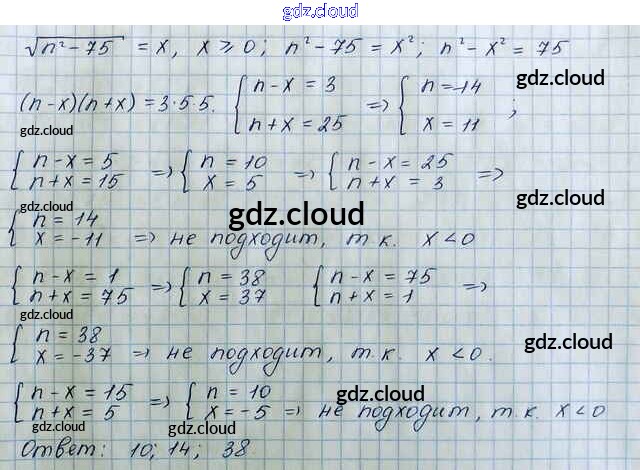 gdz.cloud
√(n² – 75) = x, x ⩾ 0; n² – 75 = x²; n² – x² = 75
gdz.cloud
(n–x)(n+x) = 3·5·5. { n – x = 3 n + x = 25 => { n = –14 x = 11 ;
gdz.cloud gdz.cloud
{ n – x = 5 n + x = 15 => { n = 10 x = 5 => { n – x = 25 n + x = 3 =>
gdz.cloud gdz.cloud gdz.cloud
{ n = 14 x = –11 => не подходит, т.к. x < 0
{ n – x = 1 n + x = 75 => { n = 38 x = 37 { n – x = 75 n + x = 1 =>
gdz.cloud gdz.cloud
{ n = 38 x = –37 => не подходит, т.к. x < 0.
gdz.cloud
{ n – x = 15 n + x = 5 => { n = 10 x = –5 => не подходит, т.к. x < 0
gdz.cloud gdz.cloud
Ответ: 10; 14; 38
gdz.cloud gdz.cloud